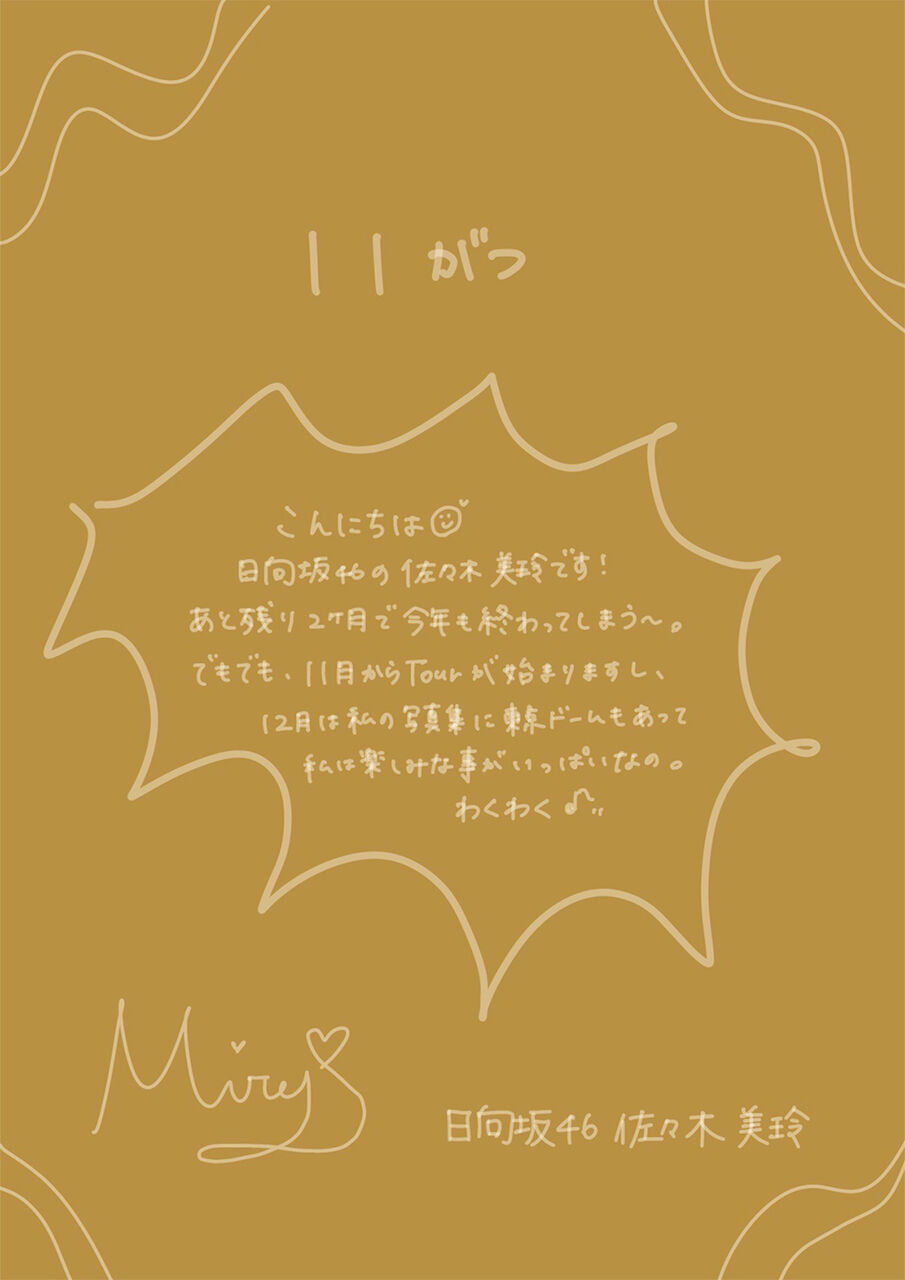 11がつ
こんにちは
日向坂46の佐々木美玲です!
あと残り2ヶ月で今年も終わってしまう〜。
でもでも、11月からTourが始まりますし、
12月は私の写真集に東京ドームもあって
私は楽しみな事がいっぱいなの。
わくわく♪"
Mirei
日向坂46 佐々木美玲